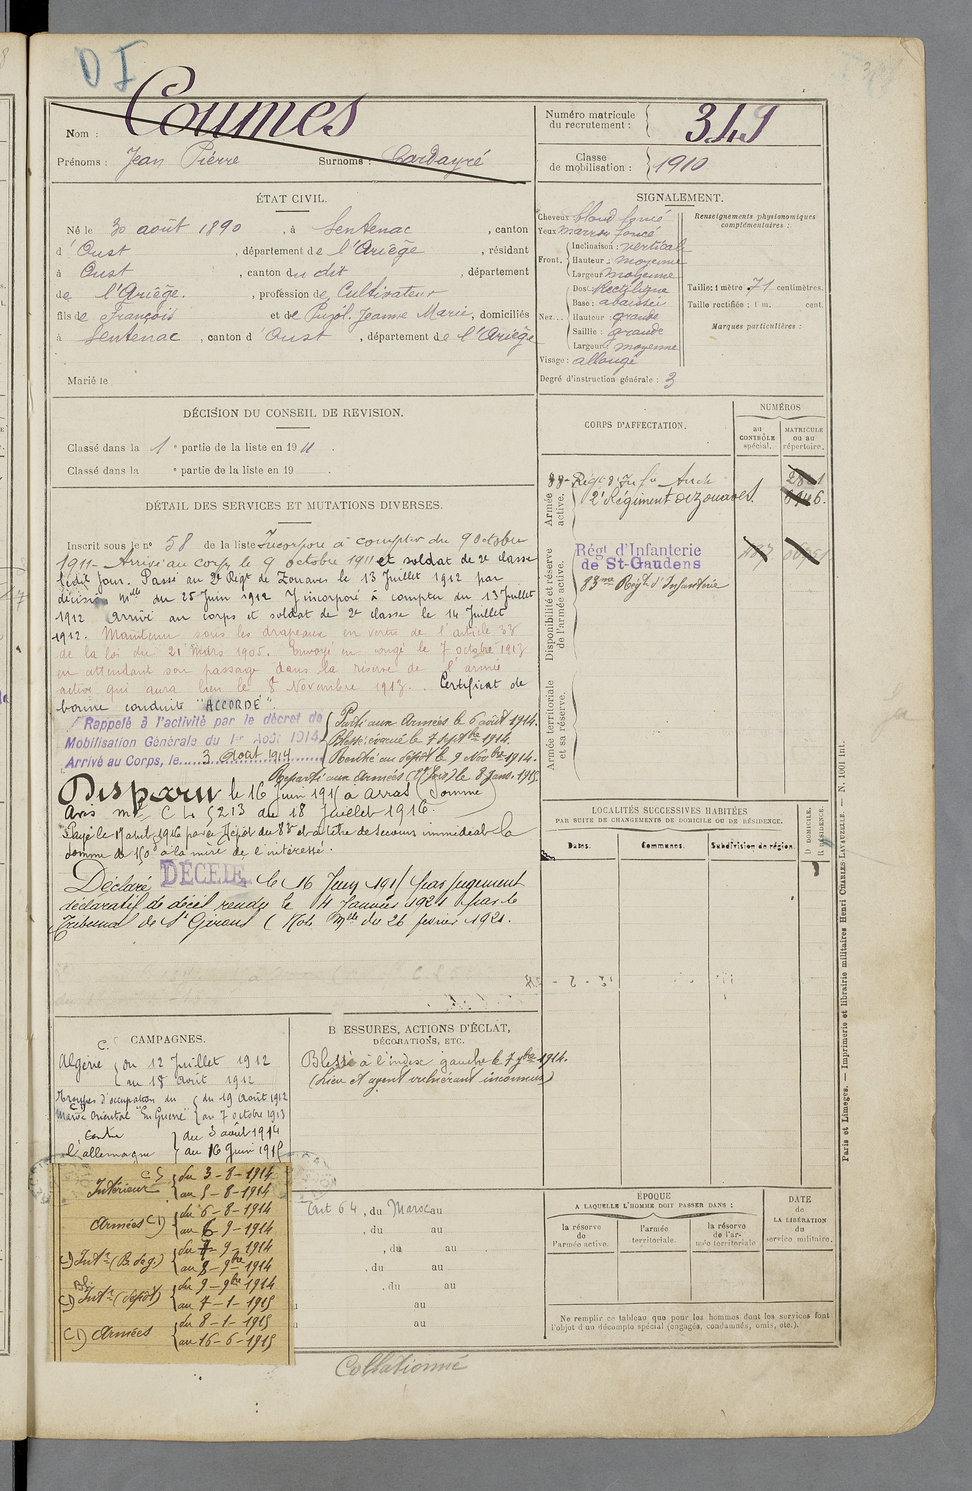 D I
Nom : Coumes
Prénoms : Jean Pierre Surnoms : Lardayré
Numéro matricule
du recrutement : 349
Classe
de mobilisation : 1910
ÉTAT CIVIL.
Né le 30 août 1890, à Sentenac, canton
d'Oust, département de l'Ariège, résidant
à Oust, canton du dit, département
de l'Ariège, profession de Cultivateur
fils de François et de Pujol Jeanne Marie, domiciliés
à Sentenac, canton d'Oust, département de l'Ariège
Marié le
SIGNALEMENT.
Cheveux blond foncé
Yeux marron foncé
Front. Inclinaison : vertical
Hauteur : moyenne
Largeur moyenne
Nez... Dos : Rectiligne
Base : abaissée
Hauteur : grande
Saillie : grande
Largeur : moyenne
Visage : allongé
Degré d'instruction générale : 3
Renseignements physionomiques
complémentaires :
Taille : 1 mètre 71 centimètres.
Taille rectifiée : 1 m. cent.
Marques particulières :
DÉCISION DU CONSEIL DE REVISION.
Classé dans la 1e partie de la liste en 1911.
Classé dans la e partie de la liste en 19 .
DÉTAIL DES SERVICES ET MUTATIONS DIVERSES.
Inscrit sous le n° 58 de la liste Incorporé à compter du 9 octobre
1911 - Arrivé au corps le 9 octobre 1911 et soldat de 2e classe
ledit jour. Passé au 2e Régt de Zouaves le 13 Juillet 1912 par
décision mlle du 25 Juin 1912 Y incorporé à compter du 13 Juillet
1912 Arrivé au corps et soldat de 2e classe le 14 Juillet
1912. Maintenu sous les drapeaux en vertu de l'article 33
de la loi du 21 Mars 1905. Envoyé en congé le 7 octobre 1913
en attendant son passage dans la réserve de l'armée
active qui aura lieu le 8 Novembre 1913. Certificat de
bonne conduite "ACCORDÉ".
Rappelé à l'activité par le décret de
Mobilisation Générale du 1er Août 1914
Arrivé au Corps, le 3 Août 1914
Parti aux Armées le 6 août 1914.
Blessé évacué le 7 septbre 1914.
Rentré au dépôt le 9 Novbre 1914.
Reparti aux Armées le 8 Janv. 1915
Disparu le 16 Juin 1915 à Arras (Somme)
Avis mel C L 5213 du 18 Juillet 1916.
Payé le 17 août 1916 par le Dépôt du 83e à titre de secours immédiat la
somme de 150f à la mère de l'intéressé.
Déclaré DÉCÉDÉ le 16 Juin 1915 par jugement
déclaratif de décès rendu le 4 Janvier 1921 par le
Tribunal de St Girons (Not. Mlle du 26 février 1921.
CORPS D'AFFECTATION.
NUMÉROS
au
CONTRÔLE
spécial.
MATRICULE
ou au
répertoire.
Armée
active.
88e Régt d'Infie Auch
2e Régiment de zouaves
Disponibilité et réserve
de l'armée active.
Régt d'Infanterie
de St-Gaudens
83me Régt d'Infanterie
Armée territoriale
et sa réserve.
LOCALITÉS SUCCESSIVES HABITÉES
PAR SUITE DE CHANGEMENTS DE DOMICILE OU DE RÉSIDENCE.
Dates.
Communes.
Subdivision de région.
D. DOMICILE.
R. RÉSIDENCE.
CAMPAGNES.
Algérie du 12 Juillet 1912
au 18 août 1912
Troupes d'occupation du du 19 Août 1912
Maroc Oriental "En Guerre" au 7 octobre 1913
Contre du 3 août 1914
l'allemagne au 16 Juin 1915
Intérieur CS du 3-8-1914
au 5-8-1914
Armées (C1) du 6-8-1914
au 6-9-1914
Intr (B. de g.) du 7-9-1914
au 8-9bre 1914
Intr (dépôt) du 9-9bre 1914
au 7-1-1915
C1) Armées du 8-1-1915
au 16-6-1915
BLESSURES, ACTIONS D'ÉCLAT,
DÉCORATIONS, ETC.
Blessé à l'index gauche le 7 7bre 1914.
(Lieu et agent vulnérant inconnus)
, du Maroc au
, du au
, du au
, du au
, du au
au
au
ÉPOQUE
A LAQUELLE L'HOMME DOIT PASSER DANS :
la réserve
de
l'armée active.
l'armée
territoriale.
la réserve
de l'ar-
mée territoriale
DATE
de
LA LIBÉRATION
du
service militaire.
Ne remplir ce tableau que pour les hommes dont les services font
l'objet d'un décompte spécial (engagés, condamnés, omis, etc.).
Collationné
Paris et Limoges. — Imprimerie et librairie militaires Henri CHARLES-LAVAUZELLE. — N. 1001 Int.